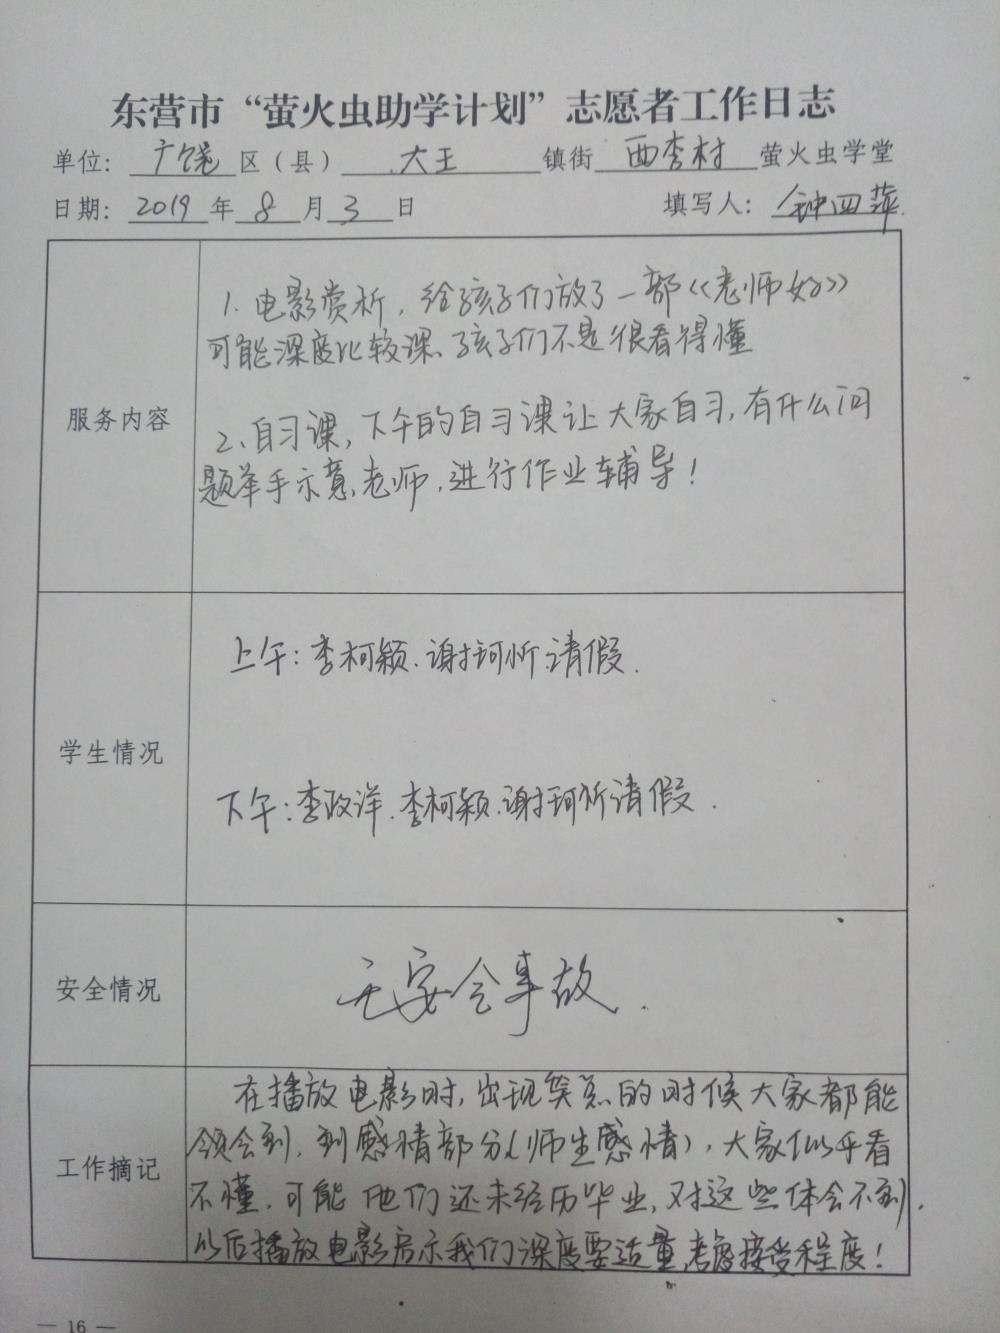 东营市“萤火虫助学计划”志愿者工作日志
单位：广饶区（县）大王镇街 西李村 萤火虫学堂
日期：2019年8月3日 填写人：钟四萍
服务内容
1. 电影赏析，给孩子们放了一部《老师好》
可能深度比较深、孩子们不是很看得懂
2、自习课，下午的自习课让大家自习，有什么问
题举手示意老师，进行作业辅导！
学生情况
上午：李柯颖、谢珂忻请假.
下午：李政洋、李柯颖、谢珂忻请假.
安全情况
无安全事故.
工作摘记
在播放电影时，出现笑点的时候大家都能
领会到，到感情部分（师生感情），大家似乎看
不懂，可能他们还未经历毕业，对这些体会不到，
以后播放电影启示我们深度要适量，考虑接受程度！
— 16 —